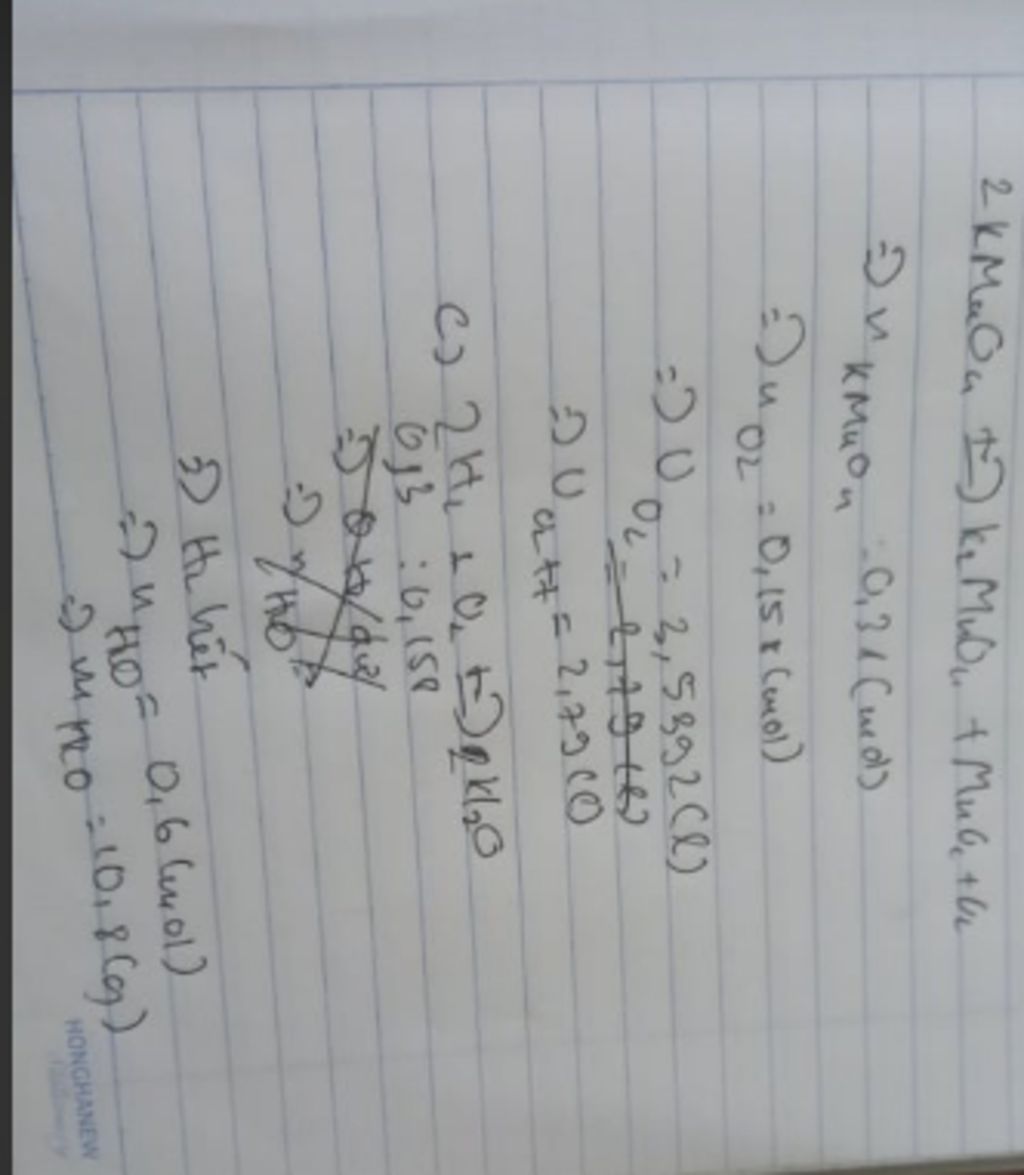 2KMnO4 t-> K2MnO4 + MnO2 + O2
=> n KMnO4 = 0,31 (mol)
=> n O2 = 0,158 (mol)
=> V O2 = 3,5392 (l)
= 2,79 (l)
=> V = 2,79 (l)
c) 2H2 + O2 t-> 2H2O
0,3 : 0,158
=> dư
=> n H2O
=> H2 hết
=> n H2O = 0,6 (mol)
=> m H2O = 10,8 (g)
HONGHANEW